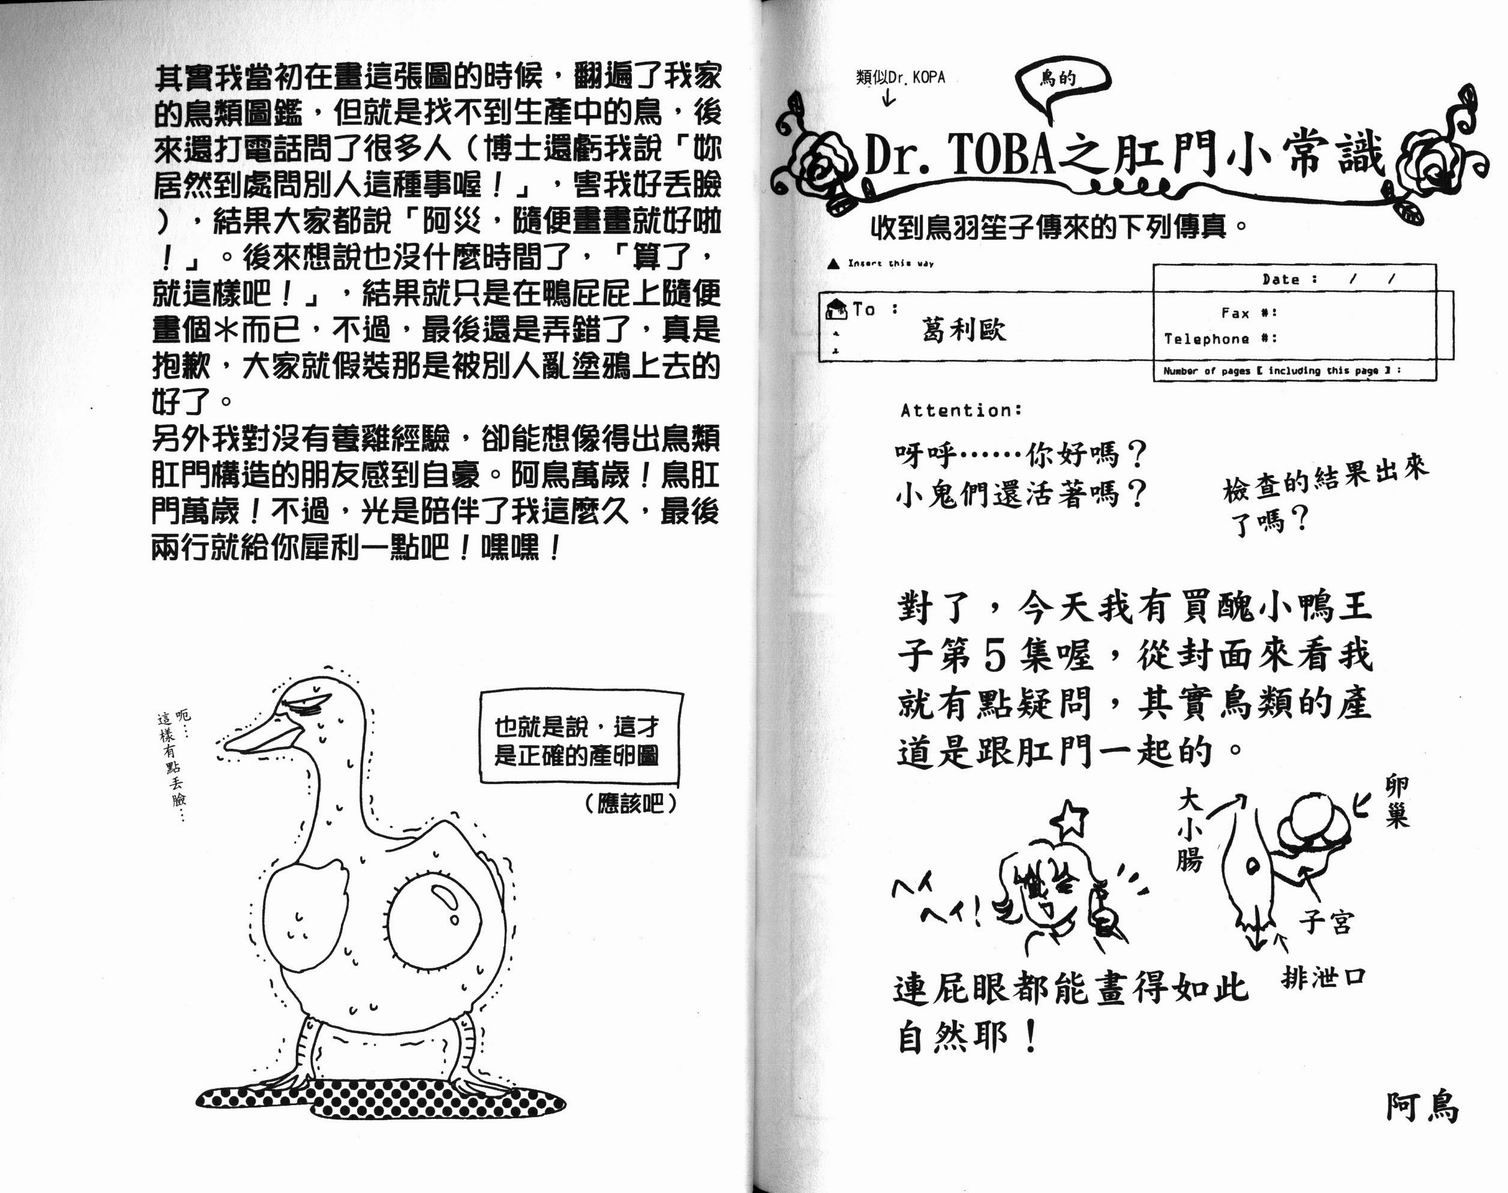 類似Dr. KOPA
鳥的
Dr. TOBA之肛門小常識
收到鳥羽笙子傳來的下列傳真。
▲ Insert this way
Date : / /
To :
葛利歐
Fax #:
Telephone #:
Number of pages [ including this page ] :
Attention:
呀呼……你好嗎？
小鬼們還活著嗎？
檢查的結果出來
了嗎？
對了，今天我有買醜小鴨王
子第５集喔，從封面來看我
就有點疑問，其實鳥類的產
道是跟肛門一起的。
大小腸
卵巢
子宮
排泄口
ヘイ
ヘイ！
連屁眼都能畫得如此
自然耶！
阿鳥
其實我當初在畫這張圖的時候，翻遍了我家
的鳥類圖鑑，但就是找不到生產中的鳥，後
來還打電話問了很多人（博士還虧我說「妳
居然到處問別人這種事喔！」，害我好丟臉
），結果大家都說「阿災，隨便畫畫就好啦
！」。後來想說也沒什麼時間了，「算了，
就這樣吧！」，結果就只是在鴨屁屁上隨便
畫個＊而已，不過，最後還是弄錯了，真是
抱歉，大家就假裝那是被別人亂塗鴉上去的
好了。
另外我對沒有養雞經驗，卻能想像得出鳥類
肛門構造的朋友感到自豪。阿鳥萬歲！鳥肛
門萬歲！不過，光是陪伴了我這麼久，最後
兩行就給你犀利一點吧！嘿嘿！
也就是說，這才
是正確的產卵圖
（應該吧）
呃…
這樣有點丟臉…